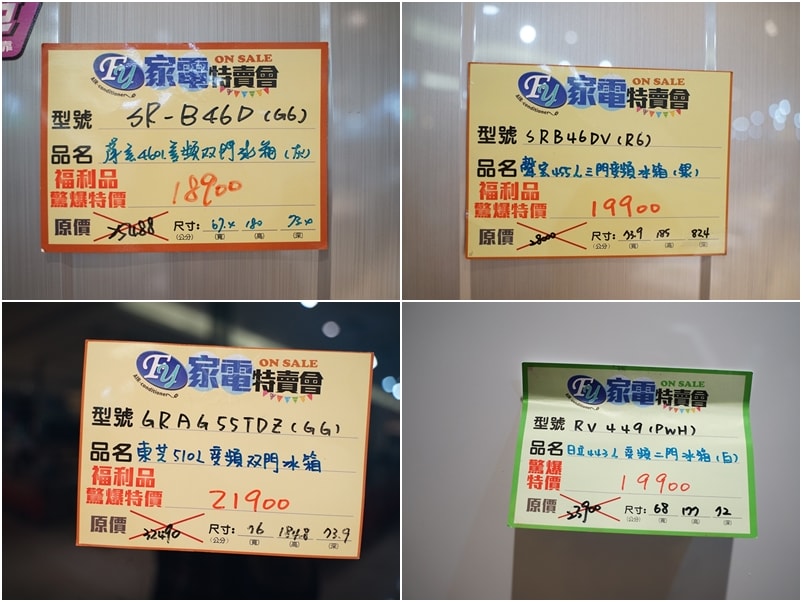 Fu 家電特賣會 ON SALE
Air-conditioner
型號 SR-B46D(G6)
品名 聲寶460L變頻双門冰箱(灰)
福利品
驚爆特價 18900
原價 25488 尺寸: 67.x 180 73.x
(公分) (寬) (高) (深)
Fu 家電特賣會 ON SALE
Air-conditioner
型號 SRB46DV(R6)
品名 聲宝455L三門變頻冰箱(銀)
福利品
驚爆特價 19900
原價 28000 尺寸: 73.9 185 82.4
(公分) (寬) (高) (深)
Fu 家電特賣會 ON SALE
Air-conditioner
型號 GRAG55TDZ(GG)
品名 東芝510L变頻双門冰箱
福利品
驚爆特價 21900
原價 32490 尺寸: 76 184.8 73.9
(公分) (寬) (高) (深)
Fu 家電特賣會 ON SALE
Air-conditioner
型號 RV449(PWH)
品名 日立443L变頻二門冰箱(白)
驚爆
特價 19900
原價 23900 尺寸: 68 177 72
(公分) (寬) (高) (深)